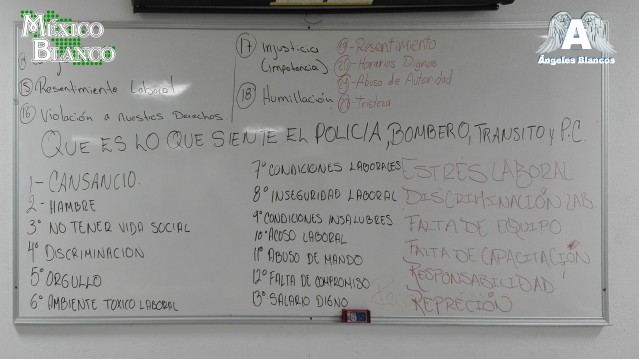 MÉXICO
BLANCO
A
Ángeles Blancos
15 Resentimiento Laboral
16 Violación a nuestros Derechos.
17 Injusticia
(impotencia)
18 Humillación
19-Resentimiento
20-Horarios Dignos
21-Abuso de Autoridad
-Tristeza
QUE ES LO QUE SIENTE EL POLICIA, BOMBERO, TRANSITO y P.C.
1- CANSANCIO.
2- HAMBRE
3° NO TENER VIDA SOCIAL
4° DISCRIMINACION
5° ORGULLO
6° AMBIENTE TOXICO LABORAL
7° CONDICIONES LABORALES
8° INSEGURIDAD LABORAL
9° CONDICIONES INSALUBRES
10° ACOSO LABORAL
11° ABUSO DE MANDO
12° FALTA DE COMPROMISO
13° SALARIO DIGNO
ESTRES LABORAL
DISCRIMINACIÓN LAB.
FALTA DE EQUIPO
FALTA DE CAPACITACIÓN
RESPONSABILIDAD
REPRECIÓN